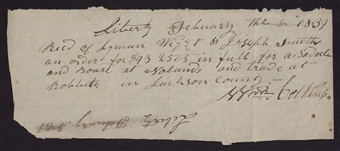 Liberty February the 1839
Recd of Lyman Wight & Joseph Smith
an order for $93 25cts in full for a Saddle
and Board at Nolands and trade at
in Jackson County
Liberty February